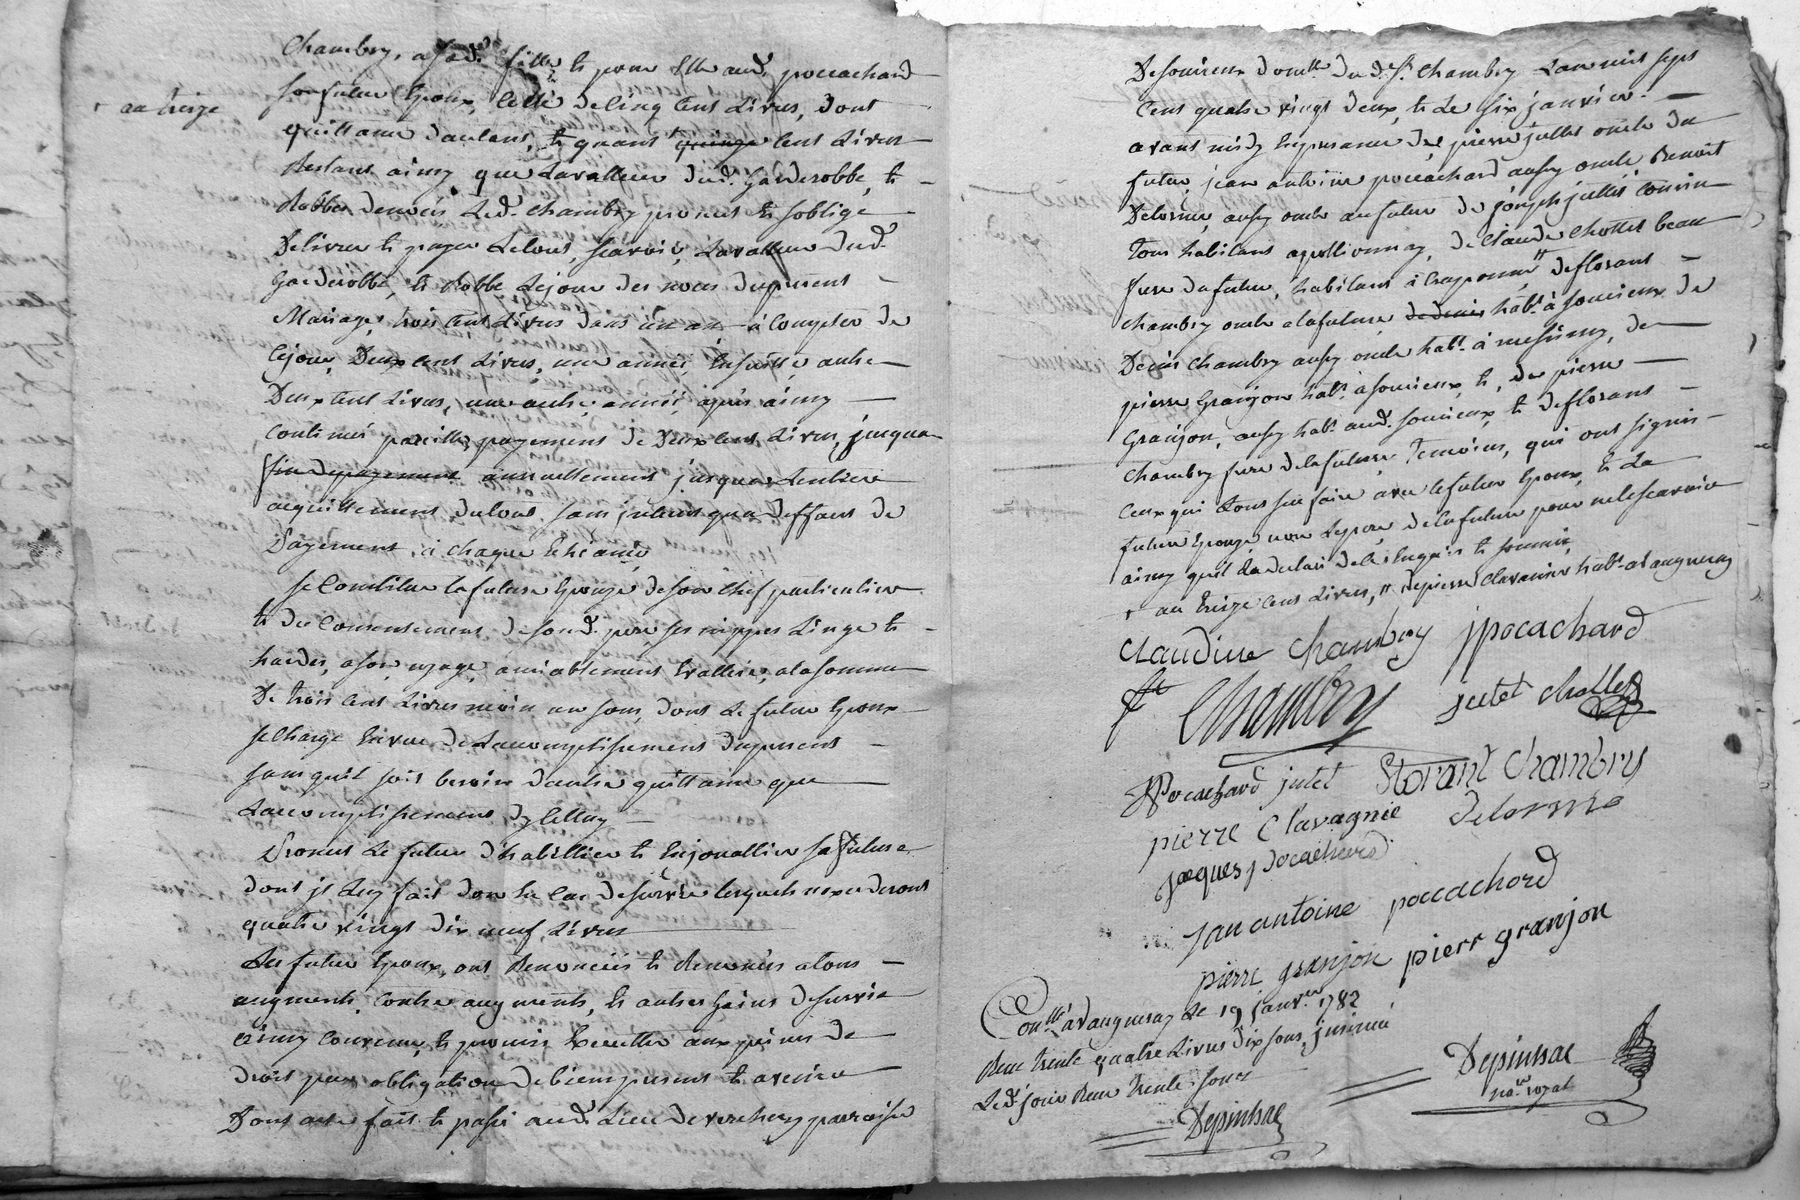 Chambry, a sad.e fille et pour elle aud. pocachard
son futur Epoux, celle de cinq Cent Livres, dont
+ au treize
quittance d'autant, et quant + quinze Cent Livres
Restant ainsy que La valleur dud. garderobbe, et
Robbe de noces Led. Chambry promet et s'oblige
Delivrer et payer Le tout, scavoir, La valleur dud.
garderobbe, et Robbe Le jour des noces du present
Mariage, trois Cent Livres dans un an a Compter de
Cejour, Deux cent Livres, une année, Ensuitte, autre
Deux Cent Livres, une autre année, après ainsy
Continué pareillz payement de Deux Cent Livres, jusqua
fin de payement annuellement jusqua Lentiere
acquittement du tout, sans interest qua deffaut de
Payement à chaque Echéance
Se Constitue La future Epouse de son Chef particulier
et du Consentement de sond. pere ses nippes Linge et
hardes, a son usage, amiablement Evallués, a la somme
De trois Cent Livres moin un sous, dont Le futur Epoux
se Charge En vue de L'accomplissement du present
sans quil soit besoin d'autre quittance que
L'accomplissement dycelluy
Promet Le futur d'habillier et Enjouallier sa future
dont jl Luy fait don En Cas de survie lesquels nexcederont
quatre vingt dix neuf Livres
Les futur Epoux, ont Renoncées et Renonces a tous
augments, Contre augments, Et autres gains de survie
ainsy Convenu, et promis Executter aux peines de
droit par obligation de biens present et avenir
Dont acte fait et passé aud. Lieu de verchery parroisse
De soucieux domlle dud. sr. Chambry Lan mil sept
Cent quatre vingt deux, et Le six janvier
avant midy En presence de pierre juttet oncle du
futur, jean antoine pocachard aussy oncle Benoit
Delorme, aussy oncle au futur de joseph juttet Cousin
tous habitans a pollionnay, de Claude Chollet beau
frere du futur, habitant à Craponne " de florant
Chambry oncle a la future de denis habt. à soucieux de
Denis Chambry aussy oncle habt. à messimy, de
pierre Granjon habt. à soucieux, et, de pierre
Granjon, aussy habt. aud. soucieux et de florant
Chambry frere de la future, Temoins, qui ont signés
Ceux qui L'ont sçu faire avec le futur Epoux, et La
future Epouse, non Le pere de la future pour ne le scavoir
ainsy quil La declaré de ce Enquis et sommé
+ au treize cent Livres, " de pierre Clavanier habt. a Vaugneray
Claudine Chambry jpocachard
ft Chambry jutet chollet
JPocachard jutet florant Chambry
pierre Clavagnie Delorme
jaques pocachard
jan antoine pocachord
pierre granjon pierr granjon
Conllé a Vaugneray Le 19 janvier 1782
Reçu trente quatre Livres dix sous, jnsinué
Led. jour Reçu trente sous
Depinhac
Depinhac
nore. royal